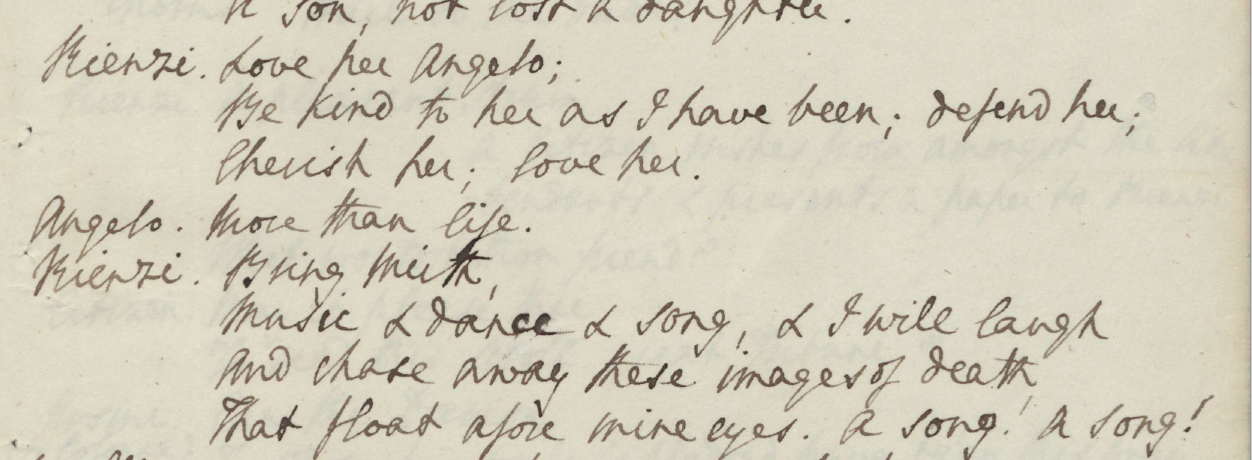 A son, not lost a daughter.
Rienzi. Love her Angelo;
Be kind to her as I have been; defend her;
Cherish her; love her.
Angelo. More than life.
Rienzi. Bring Mirth,
Music & dance & song, & I will laugh
And chase away these images of death
That float afore mine eyes. A song! A song!